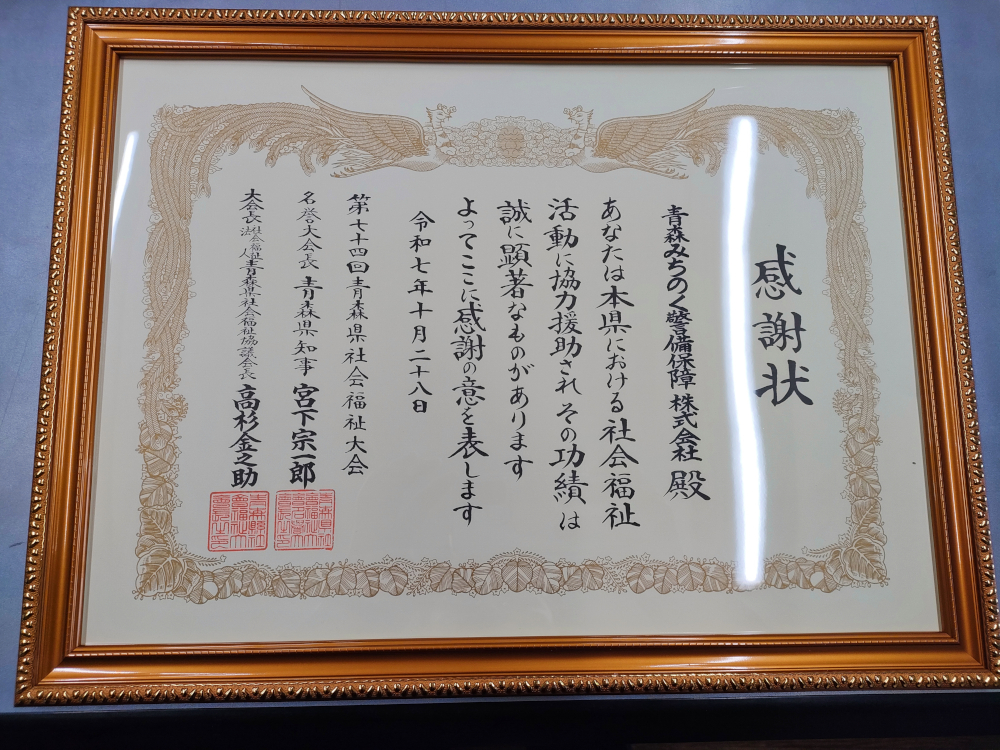 感謝状
青森みちのく警備保障 株式会社 殿
あなたは本県における社会福祉
活動に協力援助され その功績は
誠に顕著なものがあります
よってここに感謝の意を表します
令和七年十月二十八日
第七十四回青森県社会福祉大会
名誉大会長 青森県知事 宮下宗一郎
大会長 社会福祉法人青森県社会福祉協議会長 高杉金之助